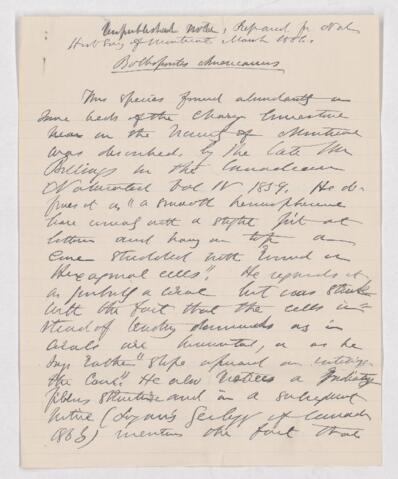 Unpublished notes, Prepared for Nat
Hist Soc of Montreal March 1880.
Bolboporites Americanus
This species found abundantly in
some beds of the Chazy limestone
near in the vicinity of Montreal
was described by the late Mr
Billings in the Canadian
Naturalist Vol IV 1859. He de-
fines it as "a smooth hemispherical
base usually with a slight pit at
bottom and having on top a
cone studded with round or
Hexagonal cells". He regards it
as probably a coral but was struck
with the fact that the cells in-
stead of tending downwards as in
corals are horizontal, or as he
says rather "slope upward on entering
the cone". He also notices a radiating
fibrous structure and in a subsequent
notice (Logan's Geology of Canada
1863) mentions the fact that